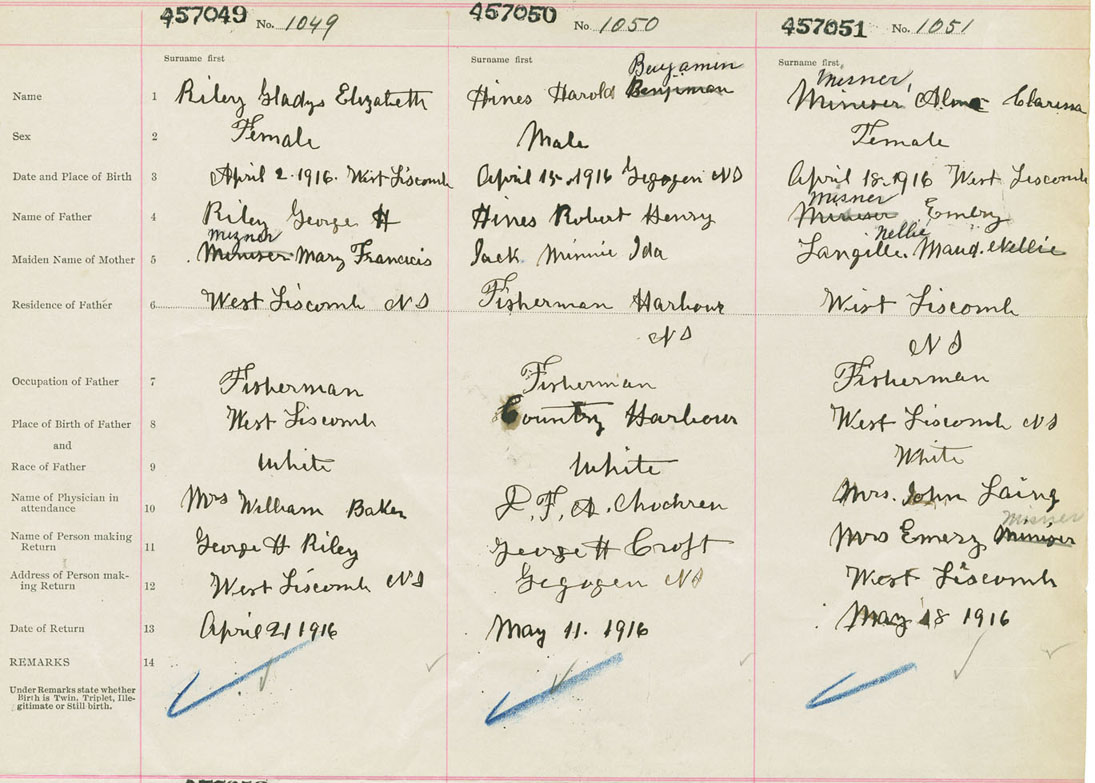 457049 No. 1049 457050 No. 1050 457051 No. 1051
Surname first Surname first Surname first
Benjamin Misner,
Name 1 Riley Gladys Elizabeth Hines Harold Benjiman Miniser Alma Clarissa
Sex 2 Female Male Female
Date and Place of Birth 3 April 2. 1916. West Liscomb April 15. 1916 Gegogen NS April 18. 1916 West Liscomb
Misner
Name of Father 4 Riley George H Hines Robert Henry Miniser Embry
Mizner Nellie
Maiden Name of Mother 5 Miniser. Mary Francies Jack Minnie Ida Langille. Maud. Nellie
Residence of Father 6 West Liscomb NS Fisherman Harbour West Liscomb
NS NS
Occupation of Father 7 Fisherman Fisherman Fisherman
Place of Birth of Father 8 West Liscomb Country Harbour West Liscomb NS
and
Race of Father 9 White White White
Name of Physician in
attendance 10 Mrs William Baker Mrs. John Laing
Misner
Name of Person making
Return 11 George H Riley George H Croft Mrs Emery Miniser
Address of Person mak-
ing Return 12 West Liscomb NS Gegogen NS West Liscomb
Date of Return 13 April 21 1916 May 11. 1916 May 18 1916
REMARKS 14
Under Remarks state whether
Birth is Twin, Triplet, Ille-
gitimate or Still birth.